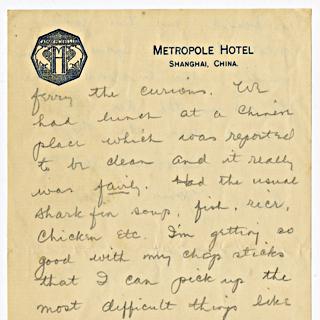 METROPOLE HOTEL
SHANGHAI, CHINA.
ferry the curious. We
had lunch at a Chinese
place which was reported
to be clean and it really
was fairly. Had the usual
shark fin soup, fish, rice,
Chicken etc. I'm getting so
good with my chop sticks
that I can pick up the
most difficult things like